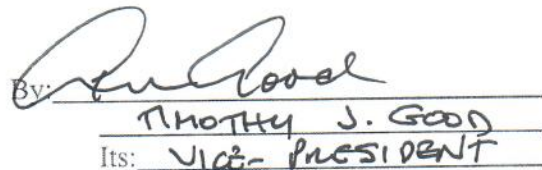 By: Tim Good
TIMOTHY J. GOOD
Its: VICE-PRESIDENT